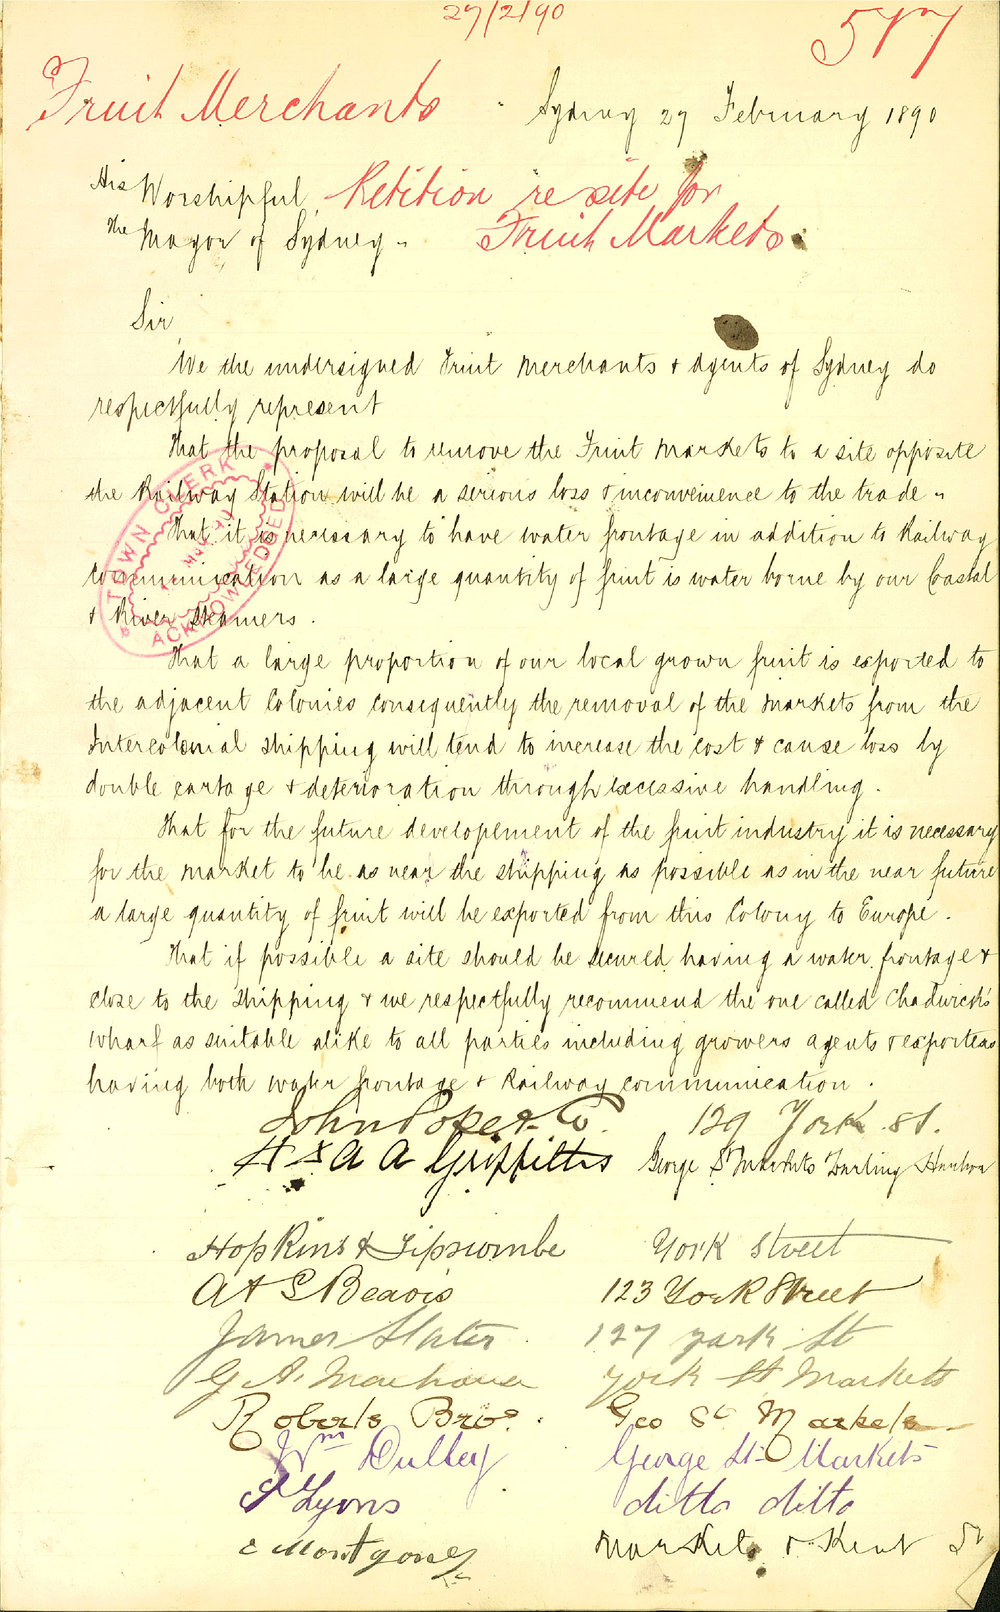 27/2/90
517
Fruit Merchants
Sydney 27 February 1890
His Worshipful
Petition re site for
The Mayor of Sydney -
Fruit Markets.
Sir,
We the undersigned Fruit Merchants & Agents of Sydney do
respectfully represent
That the proposal to remove the Fruit Markets to a site opposite
the Railway Station will be a serious loss & inconvenience to the trade -
That it is necessary to have water frontage in addition to Railway
communication as a large quantity of fruit is water borne by our Coastal
& River Steamers.
TOWN CLERK
ACKNOWLEDGED
That a large proportion of our local grown fruit is exported to
the adjacent Colonies consequently the removal of the Markets from the
Intercolonial shipping will tend to increase the cost & cause loss by
double cartage & deterioration through excessive handling.
That for the future developement of the fruit industry it is necessary
for the market to be as near the shipping as possible as in the near future
a large quantity of fruit will be exported from this Colony to Europe.
That if possible a site should be secured having a water frontage &
close to the shipping & we respectfully recommend the one called Chadwick's
wharf as suitable alike to all parties including growers agents & exporters
having both water frontage & Railway communication.
John Pope & Co. 129 York St.
H & A A Griffiths George St Markets Darling Harbour
Hopkins & Lipscombe York Street
A & S Beavis 123 York Street
James Slater 127 York St
G A. York St Markets
Roberts Bros. Geo St Markets
Wm Dulley George St Markets
Lyons ditto ditto
Montgomery Markets & Kent St